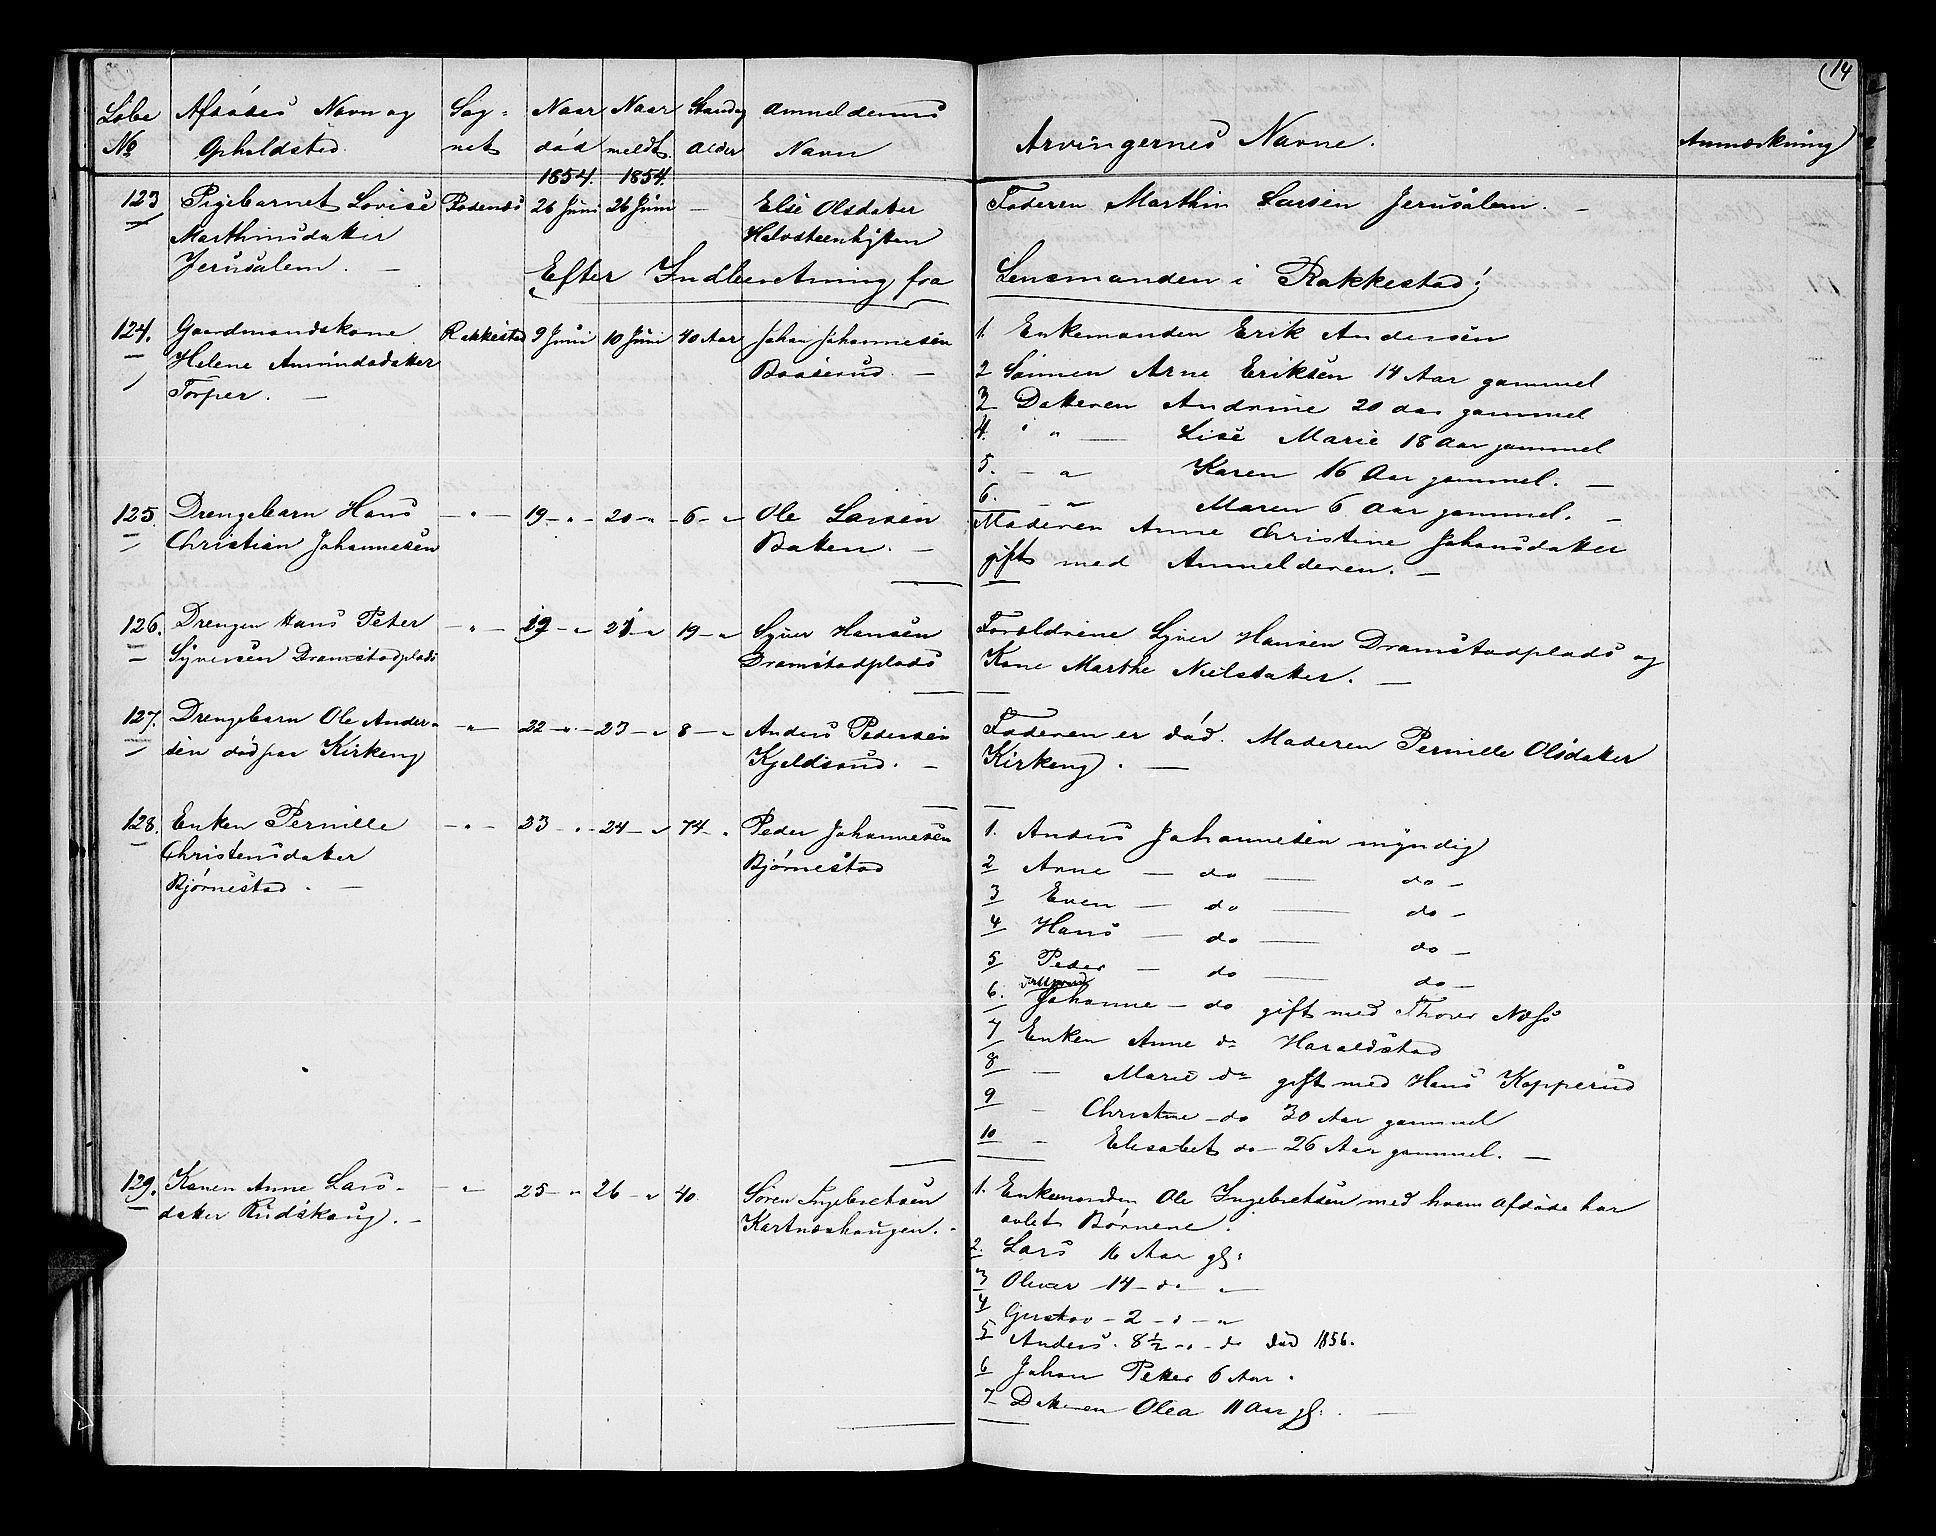 14
Løbe No
Afdødes Navn og Opholdsted
Sognet
Naar død
Naar meldt
Stand og Alder
Anmelderens Navn
Arvingernes Navne.
Anmærkning
1854. 1854.
123 Pigebarnet Lovise Rødenæs 26 Juni 26 Juni — Else Olsdatter Faderen Marthin Larsen Jerusalem. —
Marthinsdatter
Jerusalem. —
Efter Indberetning fra Lensmanden i Rakkestad:
124. Gaardmandskone Rakkestad 9 Juni 10 Juni 40 Aar Johan Johannesen 1. Enkemanden Erik Andersen
Helene Amundsdatter 2 Sønnen Arne Eriksen 14 Aar gammel
Torper. — 3 Datteren Andrine 20 aar gammel
4. " — Lise Marie 18 Aar gammel
5. — " Karen 16 Aar gammel. —
6. — " Maren 6 Aar gammel. —
125. Drengebarn Hans — " — 19 — " — 20 — " — 6 — " Ole Larsen Moderen Anne Christine Johansdatter
Christian Johannesen Bakken. — gift med Anmelderen. —
126. Drengen Hans Peter — " — 19 — " 21 — " 19 — " Syver Hansen Forældrene Syver Hansen Dramstadplads og
Syversen Dramstadplads Dramstadplads Kone Marthe Nielsdatter. —
127. Drengebarn Ole Ander- — " — 22 — " — 23 — " 8 — " Anders Pedersen Faderen er død. Moderen Pernille Olsdatter
sen Kirkeng Kirkeng. —
128. Enken Pernille — " — 23 — " — 24 — " 74 — " Peder Johannesen 1. Anders Johannesen myndig
Christensdatter Bjørnestad 2 Arne — do — do —
Bjørnestad. — 3 Even — do — do —
4 Hans — do — do —
5 Peder — do — do —
6. Johanne — do gift med Thorer Næss
7 Enken Anne do Haraldstad
8 — Marie do gift med Hans Kopperud
9 — Christine — do 30 Aar gammel
10 — Elisabet do — 26 Aar gammel. —
129. Konen Anne Lars- — " — 25 — " 26 — " 40. Søren Ingebretsen 1. Enkemanden Ole Ingebretsen med hvem afdøde har
datter Rudskoug. — avlet Børnene.
2. Lars 16 Aar gl:
3 Oliver 14 — do "
4 Gustav — 2 — " — "
5 Anders. 8½ — " — do død 1856.
6 Johan Petter 6 Aar.
7 Datteren Olea 11 Aar gl: —